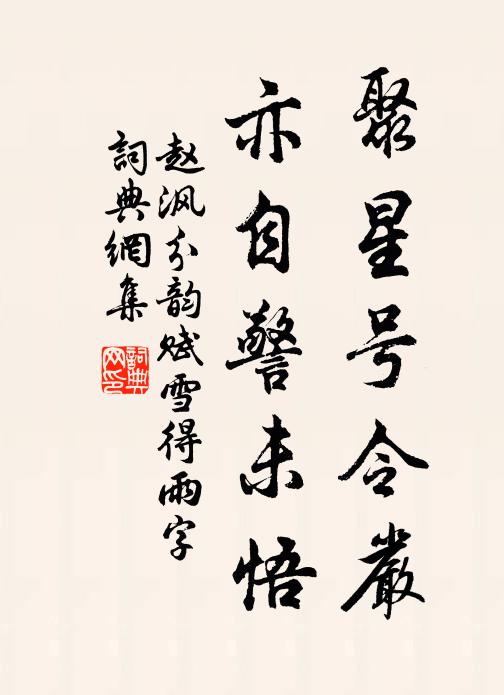 聚星号令嚴
亦自警未悟
赵沨分韵赋雪得雨字
詞典網集
詞典
网印